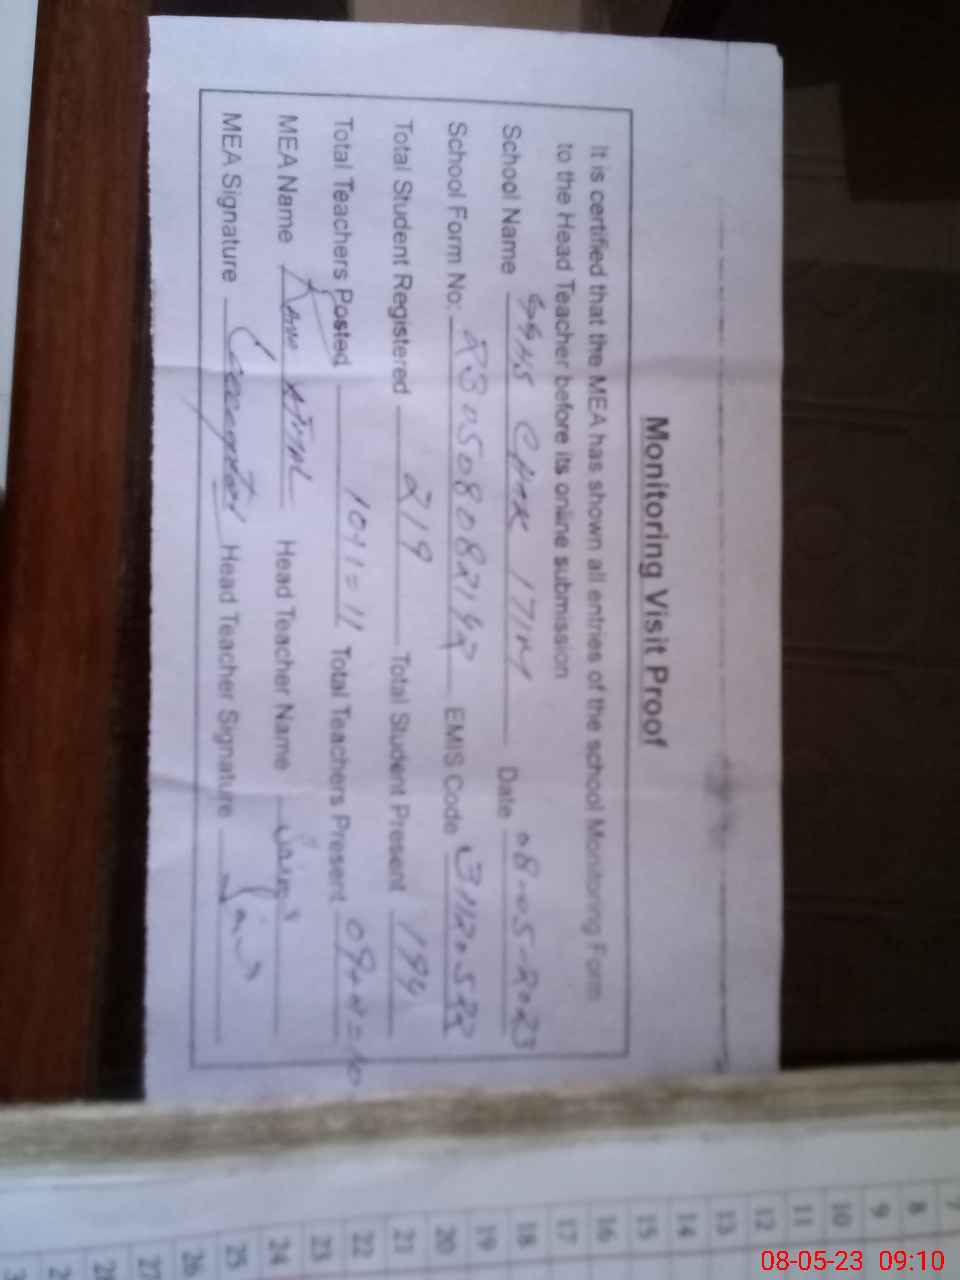 Monitoring Visit Proof
It is certified that the MEA has shown all entries of the school Monitoring Form
to the Head Teacher before its online submission
School Name GGHS CHAK 171M Date 08-05-2023
School Form No: R305080821 EMIS Code 311205
Total Student Registered 219 Total Student Present 194
Total Teachers Posted 10+1=11 Total Teachers Present 09+1=10
MEA Name Head Teacher Name
MEA Signature Head Teacher Signature
7
8
9
10
11
12
13
14
15
16
17
18
19
20
21
22
23
24
25
26
27
08-05-23 09:10